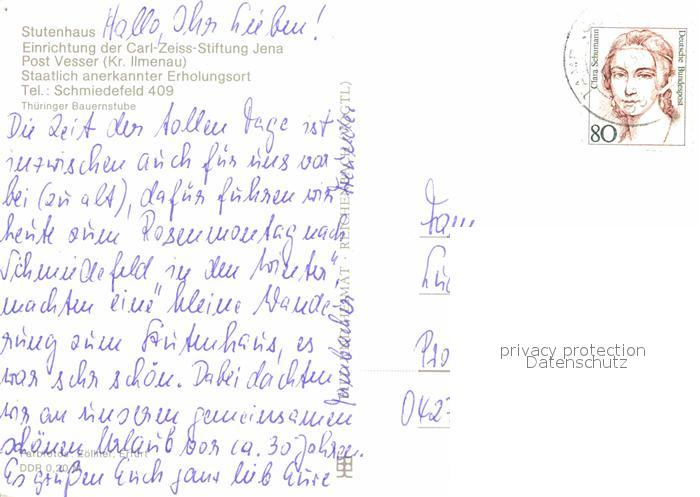 Stutenhaus
Einrichtung der Carl-Zeiss-Stiftung Jena
Post Vesser (Kr. Ilmenau)
Staatlich anerkannter Erholungsort
Tel.: Schmiedefeld 409
Thüringer Bauernstube
Hallo, Ihr Lieben!
Die Zeit der tollen Tage ist
inzwischen auch für uns vor
bei (zu alt), dafür fuhren wir
heute zum Rosenmontag nach
Schmiedefeld in den Winter",
machten eine "kleine Wande-
rung zum Stutenhaus, es
war sehr schön. Dabei dachten
wir an unseren gemeinsamen
schönen Urlaub vor ca. 30 Jahren.
Es grüßen Euch ganz lieb Eure
Zöllner, Erfurt
DDR 0,20
REICHENBACH (VOGTL)
Fam
Pro
042
Clara Schumann
Deutsche Bundespost
80
privacy protection
Datenschutz